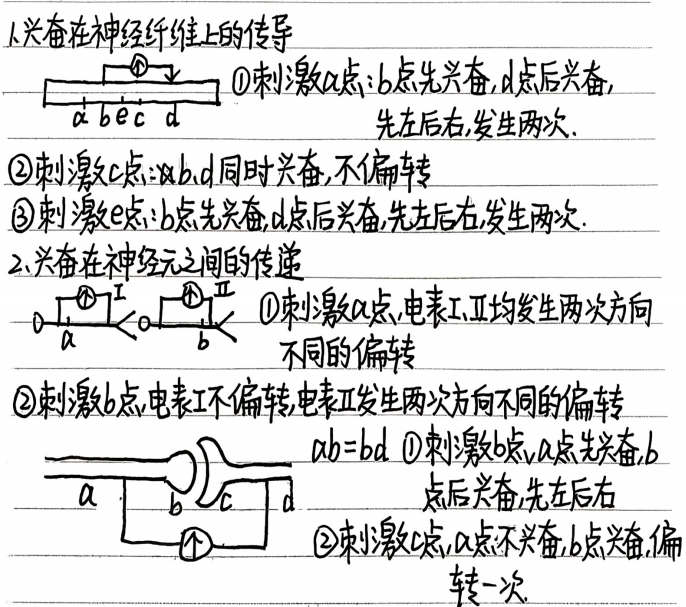 1.兴奋在神经纤维上的传导
a b e c d
①刺激a点:b点先兴奋,d点后兴奋,
先左后右,发生两次.
②刺激c点:b.d同时兴奋,不偏转
③刺激e点:b点先兴奋,d点后兴奋,先左后右,发生两次.
2.兴奋在神经元之间的传递
I II
a b
①刺激a点,电表I、II均发生两次方向
不同的偏转
②刺激b点,电表I不偏转,电表II发生两次方向不同的偏转
a b c d
ab=bd ①刺激b点,a点先兴奋,b
点后兴奋,先左后右
②刺激c点,a点不兴奋,b点兴奋,偏
转一次.